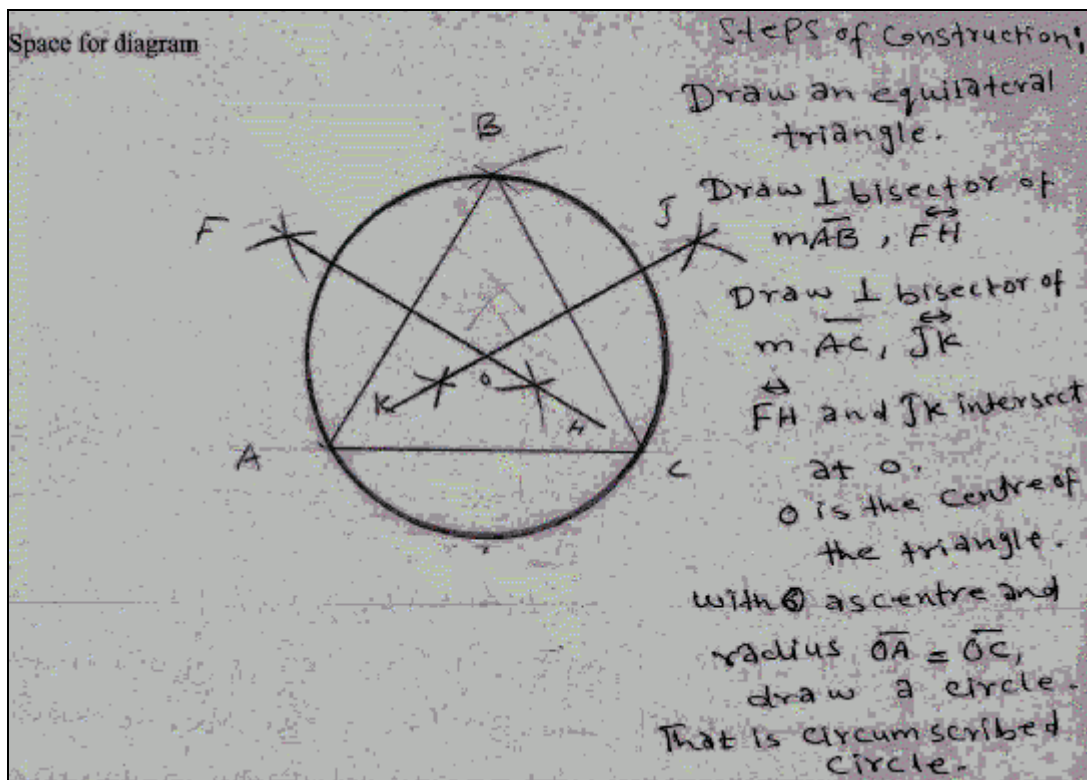 Space for diagram
Steps of construction:
Draw an equilateral
triangle.
Draw ⊥ bisector of
m\overline{AB}, \overleftrightarrow{FH}
Draw ⊥ bisector of
m \overline{AC}, \overleftrightarrow{JK}
\overleftrightarrow{FH} and JK intersect
at O.
O is the centre of
the triangle.
with O as centre and
radius \overline{OA} = \overline{OC},
draw a circle.
That is circumscribed
circle.
B
F
J
K
O
H
A
C